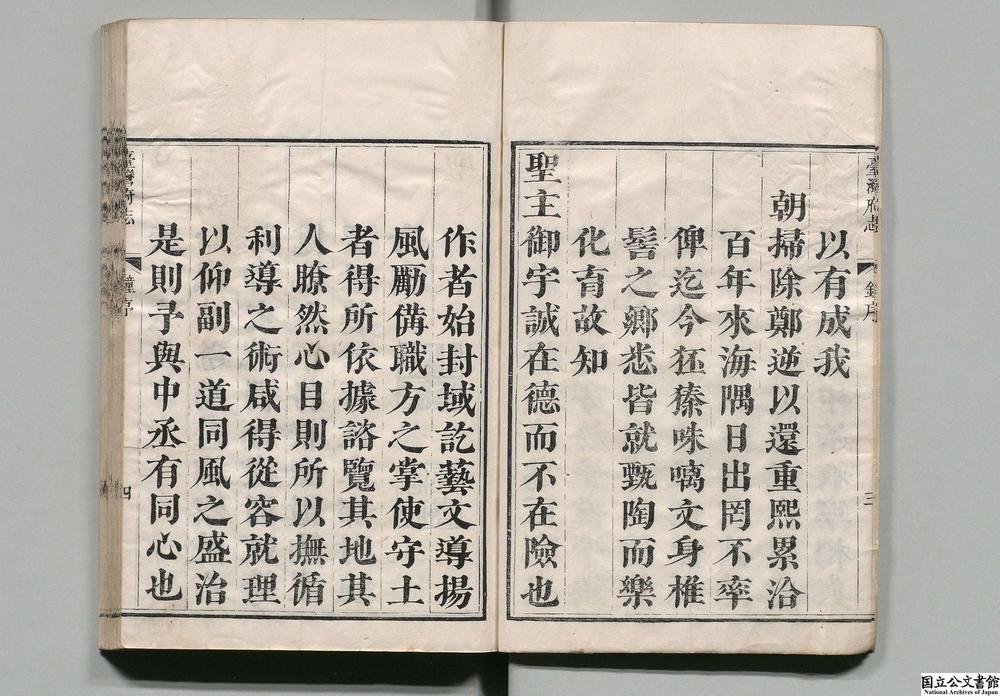 臺灣府志
鐘序
三
以有成我
朝掃除鄭逆以還重熙累洽
百年來海隅日出罔不率
俾迄今狉獉咮喁文身椎
髻之鄉悉皆就甄陶而樂
化育故知
聖主御宇誠在德而不在險也
作者始封域訖藝文導揚
風勵備職方之掌使守土
者得所依據諮覽其地其
人瞭然心目則所以撫循
利導之術咸得從容就理
以仰副一道同風之盛治
是則予與中丞有同心也
臺灣府志
鐘序
四
国立公文書館
National Archives of Japan